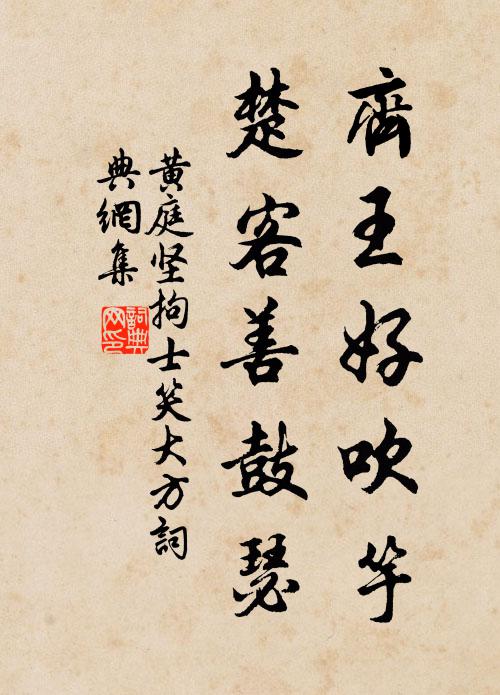 齊王好吹竽
楚客善鼓瑟
黄庭坚拘士笑大方詞
典網集
詞典
网印